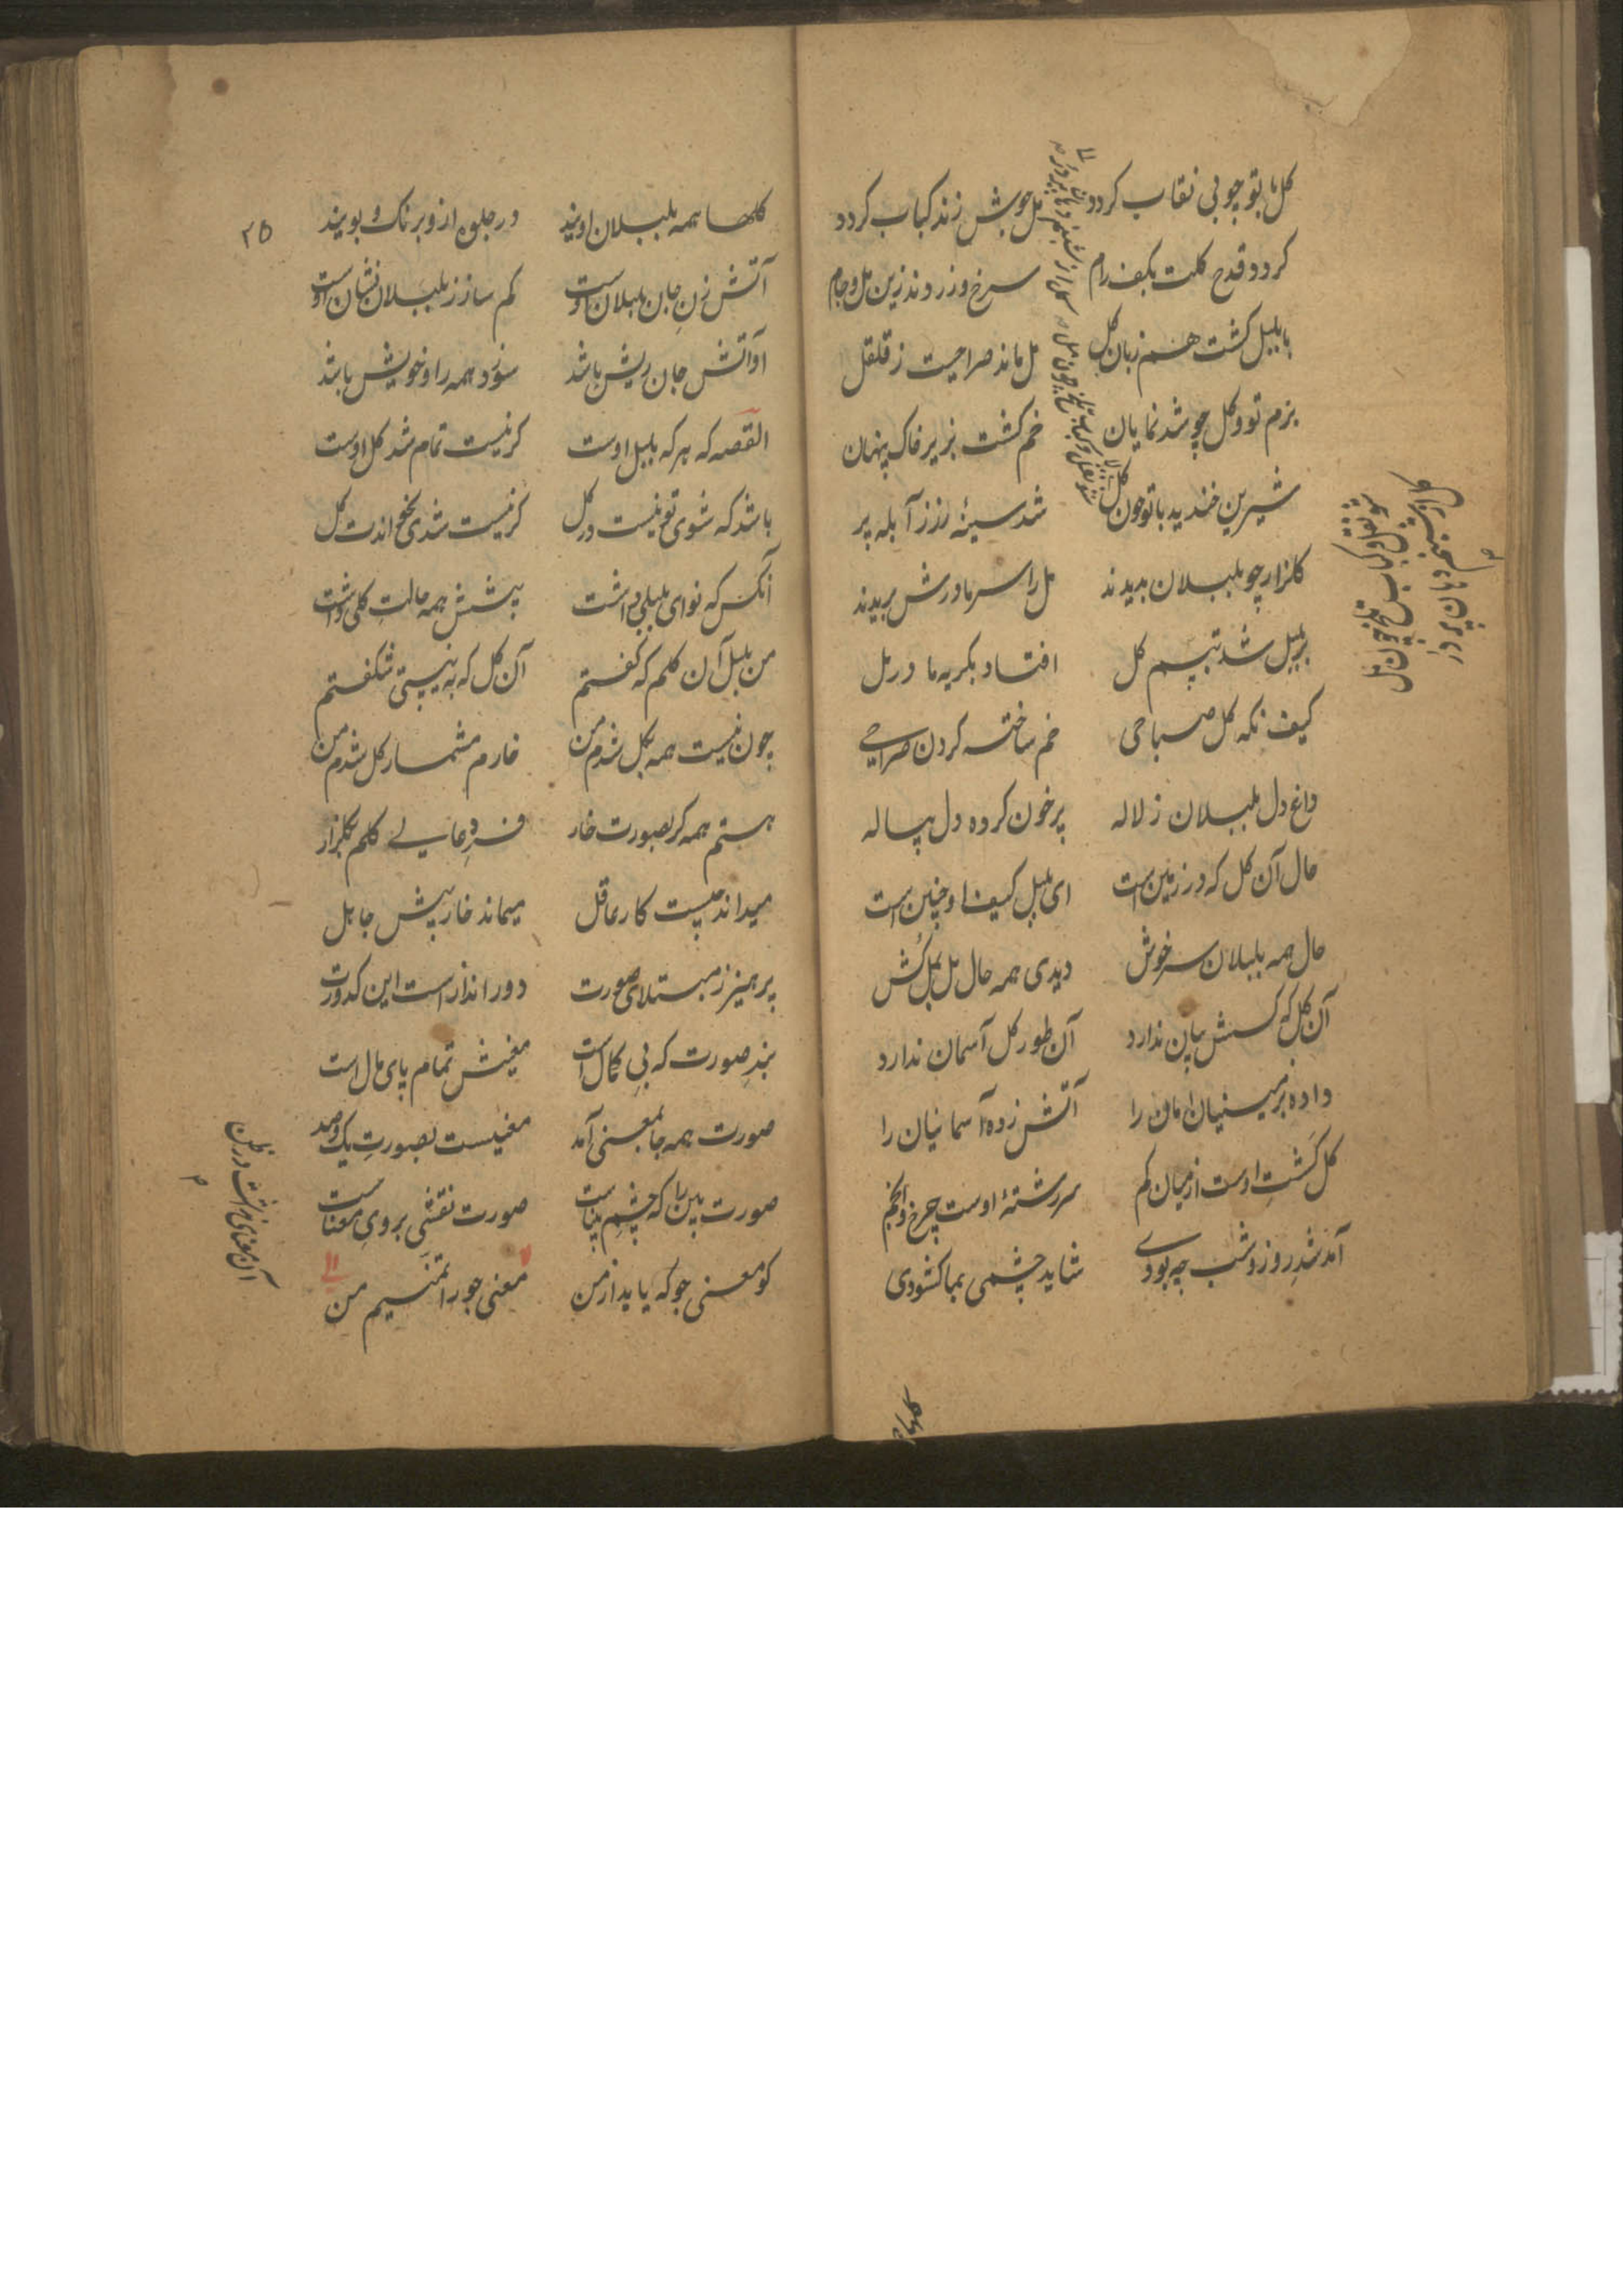 کل با تو چو بی نقاب کردد مل جوش زند کباب کردد
کردد قدح کلت بکف رام سرخ و زردند زین مل و جام
با بلبل کشت هم زبان کل مل ماند صراحیت ز قلقل
بزم تو و کل چو شد نمایان خم کشت بزیر خاک پنهان
شیرین خندید با تو چون کل شد سینهٔ رز ز آبله پر
کلزار چو بلبلان بدیدند مل را سر مادرش بریدند
بر بلبل شد تبسم کل افتاد بکریه مادر مل
کیف نکه کل صباحی خم ساخته کردن صراحی
داغ دل بلبلان ز لاله پر خون کرده دل پیاله
حال آن کل که در زمین است ای بلبل کیف او چنین است
حال همه بلبلان سرخوش دیدی همه حال مل بمل کش
آن کل که کسش بیان ندارد آن طور کل آسمان ندارد
داده بزمینیان امان را آتش زده آسمانیان را
کل کشت اوست از میان کم سررشتهٔ اوست چرخ و انجم
آمد شد روز و شب چه بودی شاید چشمی بما کشودی
کل از شبنم دهان پر در
شد نقل و کباب تلخ چون مل
۲۵
کلها همه بلبلان اویند در جلوه ازو برنک و بویند
آتش زن جان بلبلان اوست کم ساز ز بلبلان نشان اوست
او آتش جان ریش باشد سوزد همه را و خویش باشد
القصه که هر که بلبل اوست کر نیست تمام شد کل اوست
باشد که شوی تو نیست در کل کر نیست شدی نخواندت کل
آنکس که نوای بلبلی داشت پیشش همه حالت کلی داشت
من بلبل آن کلم که کفتم آن کل که به نیستی شکفتم
چون نیست همه بکل شدم من خارم مشمار کل شدم من
هستم همه کر بصورت خار فردا کلم بکلزار
میداند چیست کار عاقل میماند خار پیش جاهل
پرهیز ز مبتلای صورت دور انداز است این کدورت
بند صورت که بی کمال است معنیش تمام پای مال است
صورت همه جا بمعنی آمد معنیست بصورت یک و صد
صورت بین را که چشم بیناست صورت نقشی بروی معناست
کو معنی جو که یابد از من معنی جو را منم من